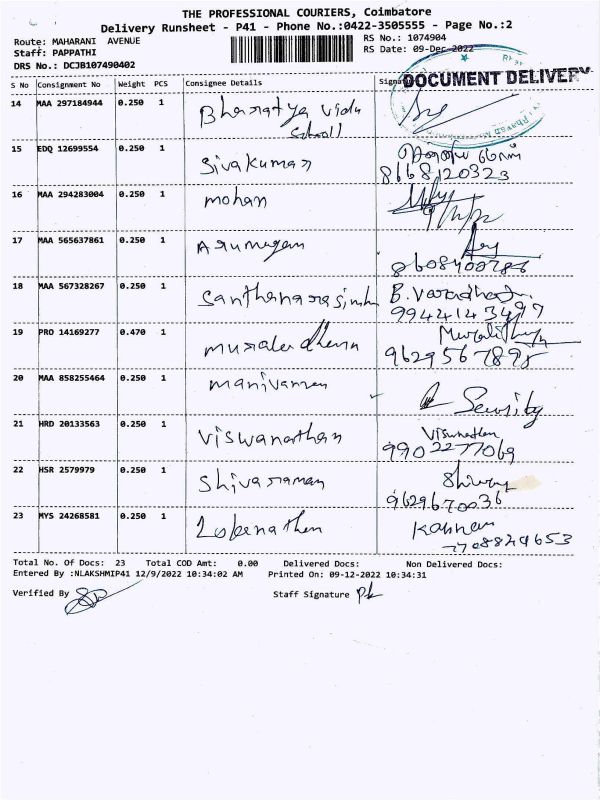 THE PROFESSIONAL COURIERS, Coimbatore
Delivery Runsheet - P41 - Phone No.:0422-3505555 - Page No.:2
Route: MAHARANI AVENUE
RS No.: 1074904
Staff: PAPPATHI
RS Date: 09-Dec-2022
DRS No.: DCJB107490402
DOCUMENT DELIVERY
S No Consignment No Weight PCS Consignee Details
14 MAA 297184944 0.250 1 Bharatya vidya
School
15 EDQ 12699554 0.250 1 Sivakumar
8168120323
16 MAA 294283004 0.250 1 mohan
17 MAA 565637861 0.250 1 Arumugam
8608400786
18 MAA 567328267 0.250 1 B. Varadha
9944143497
19 PRO 14169277 0.470 1
9629567895
20 MAA 858255464 0.250 1 manivannan
Security
21 HRD 20133563 0.250 1 Viswanathan Viswanathan
9902277069
22 HSR 2579979 0.250 1 Shivaraman
9629670036
23 MYS 24268581 0.250 1 Kannan
7708829653
Total No. Of Docs: 23 Total COD Amt: 0.00 Delivered Docs: Non Delivered Docs:
Entered By :NLAKSHMIP41 12/9/2022 10:34:02 AM Printed On: 09-12-2022 10:34:31
Verified By Staff Signature